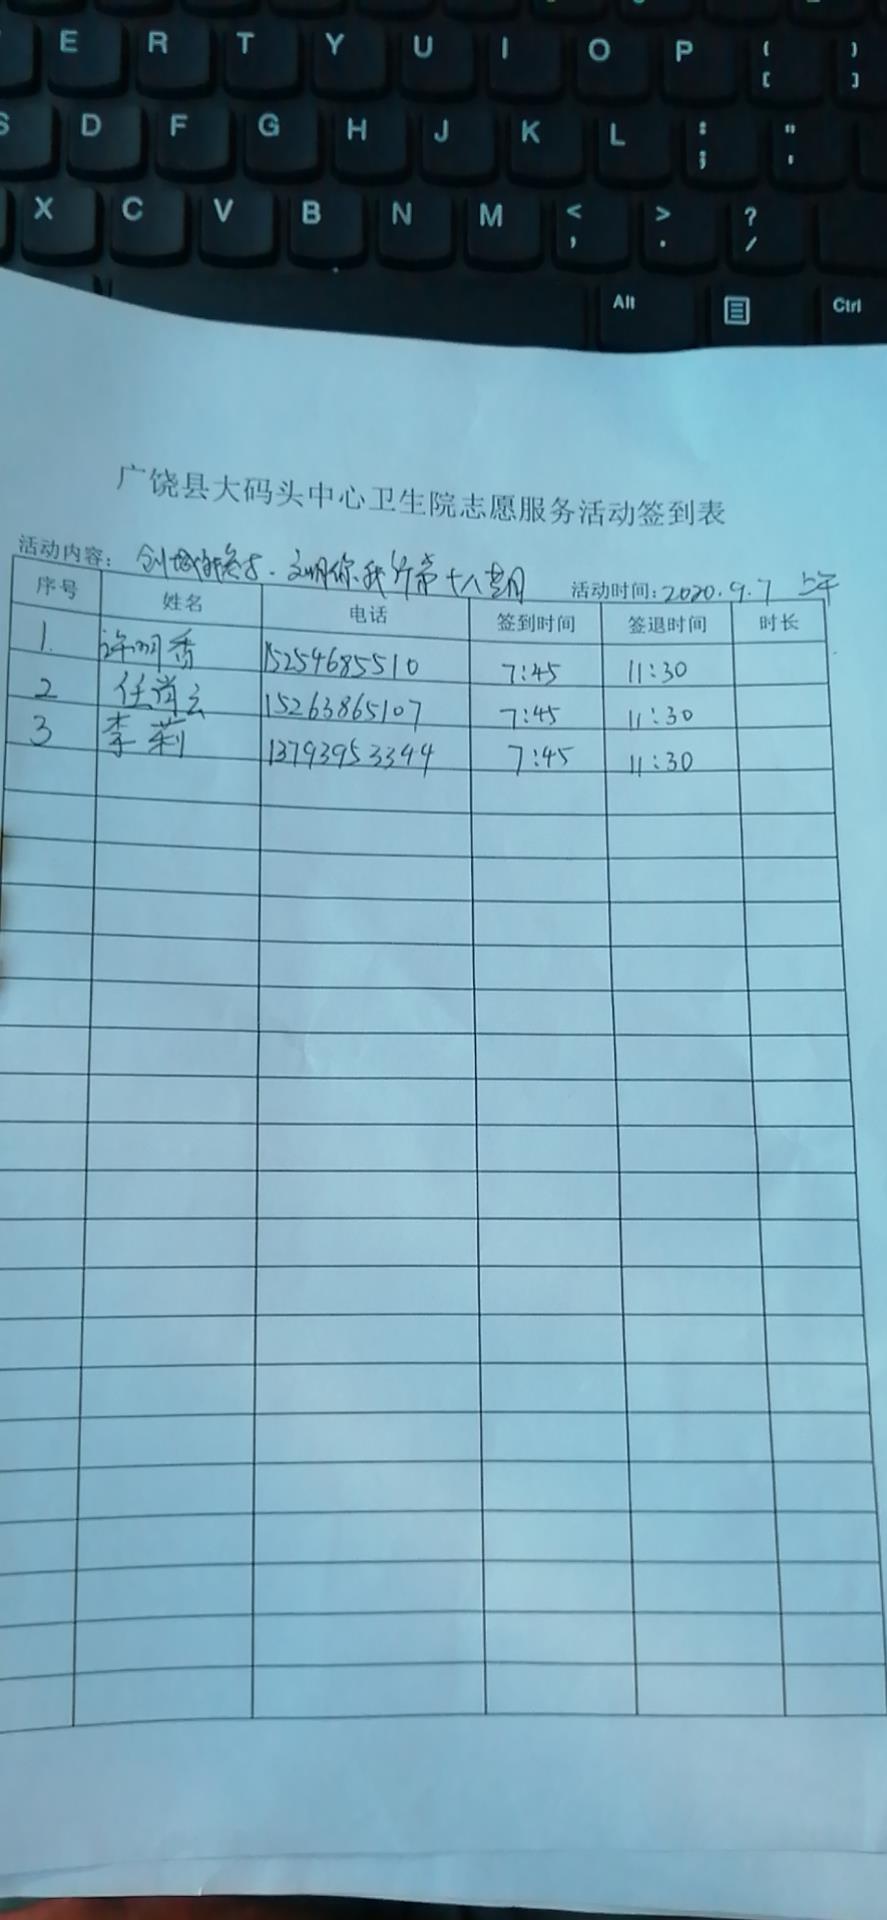 E R T Y U I O P { [ } ]
S D F G H J K L : ; " '
X C V B N M < , > . ? /
Alt Ctrl
广饶县大码头中心卫生院志愿服务活动签到表
活动内容: 创城 文明你我行第十八期 活动时间:2020.9.7 上午
序号 姓名 电话 签到时间 签退时间 时长
1. 许明香 15254685510 7:45 11:30
2 任尚云 15263865107 7:45 11:30
3 李莉 13793953394 7:45 11:30